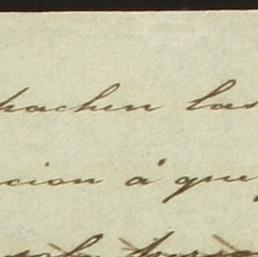 pachen las
cion á que